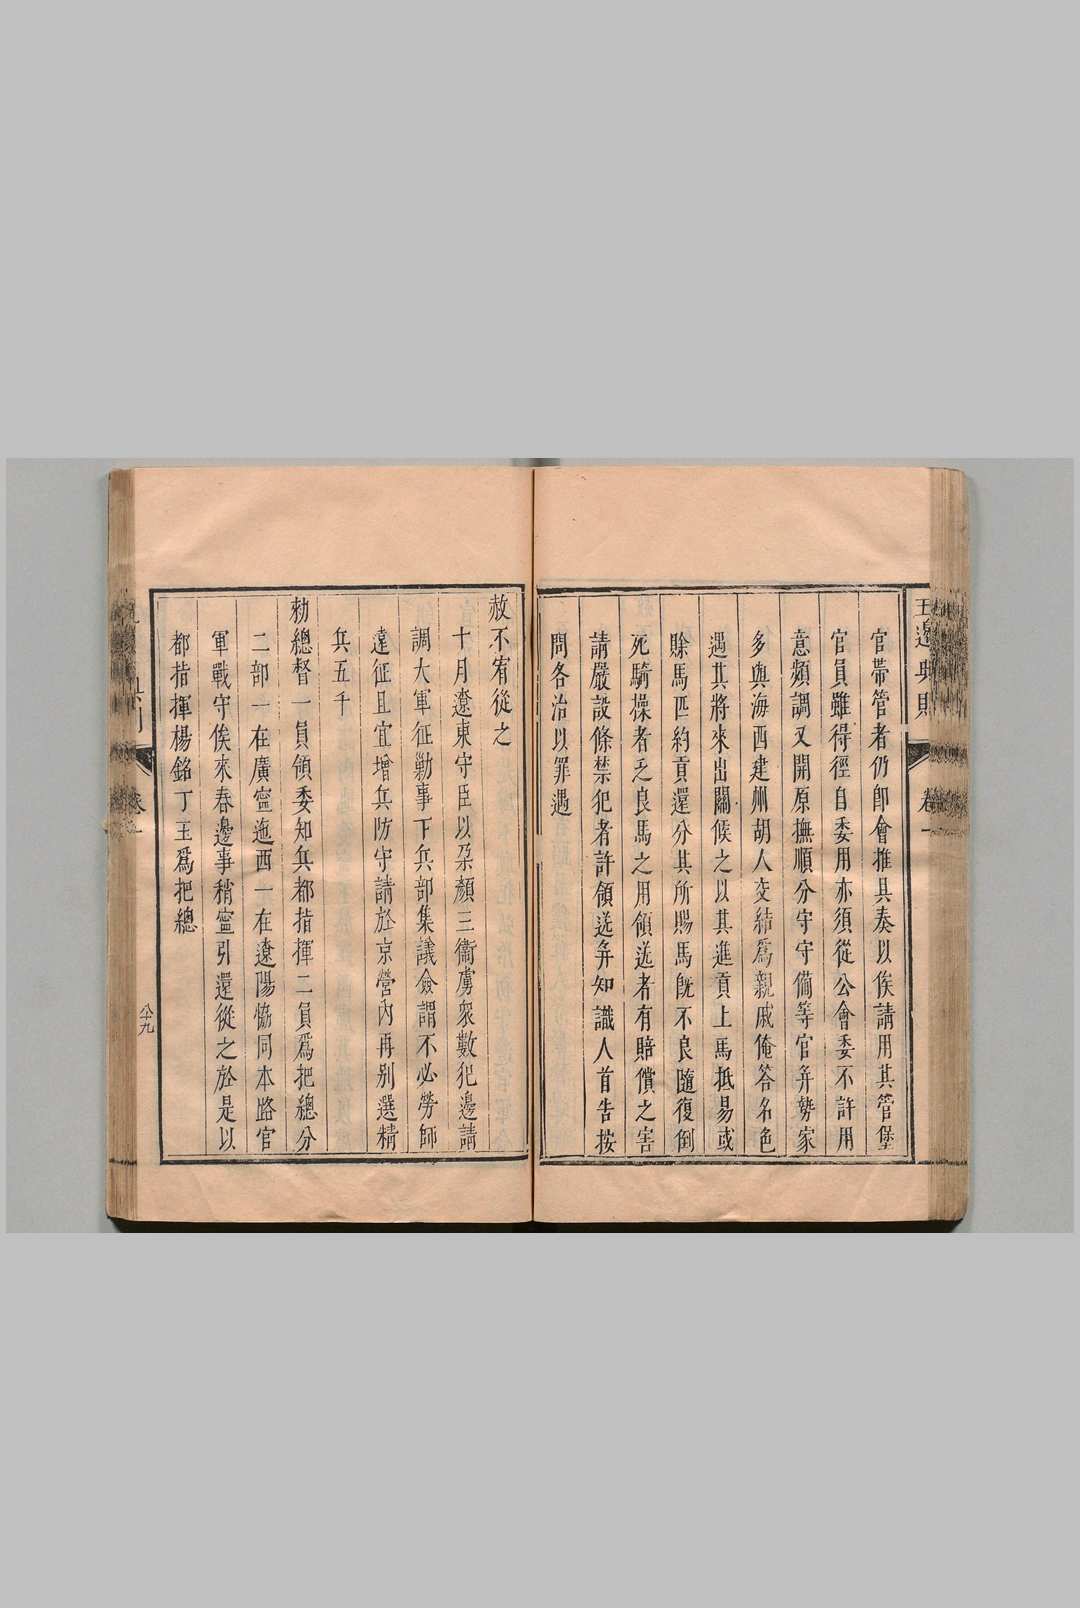 官帶管者仍即會推具奏以俟請用其管堡
官員雖得徑自委用亦須從公會委不許用
意頻調又開原撫順分守守備等官并勢家
多與海西建州胡人交結爲親戚俺答名色
遇其將來出關候之以其進貢上馬抵易或
賒馬匹約貢還分其所賜馬旣不良隨復倒
死騎操者乏良馬之用領送者有賠償之害
請嚴設條禁犯者許領送并知識人首告按
問各治以罪遇
赦不宥從之
十月遼東守臣以朶顏三衞虜衆數犯邊請
調大軍征勦事下兵部集議僉謂不必勞師
遠征且宜增兵防守請於京營內再別選精
兵五千
勑總督一員領委知兵都指揮二員爲把總分
二部一在廣寧迤西一在遼陽協同本路官
軍戰守俟來春邊事稍寧引還從之於是以
都指揮楊銘丁主爲把總
邊典則 卷一